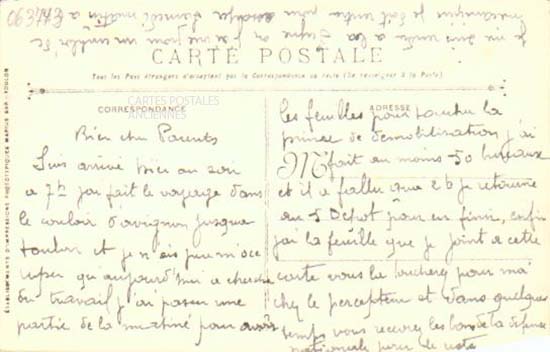 063773
je me suis rendu a la pour un
mécanicien je doit samedi matin a
CARTE POSTALE
Tous les Pays étrangers n'acceptent pas la Correspondance au recto (Se renseigner à la Poste)
CORRESPONDANCE
CARTES POSTALES
ANCIENNES
Bien chers Parents
Suis arrivé hier au soir
a 7h j'ai fait le voyage dans
le couloir d'avignon jusqua
toulon et je n'ais pu m'oc
cuper qu'aujourd'hui a chercher
du travail j'ai passer une
partie de la matiné pour avoir
ADRESSE
les feuilles pour toucher la
prime de demobilisation j'ai
M fait au moins 50 bureaux
et il a fallu que je retourne
au 5 Depot pour en finir, enfin
j'ai la feuille que je joint a cette
carte vous la toucherez pour moi
chez le percepteur et dans quelques
temps vous recevrez les bons de la defense
nationale pour le reste
ÉTABLISSEMENTS D'IMPRESSIONS PHOTOTYPIQUES MARIUS BAR - TOULON